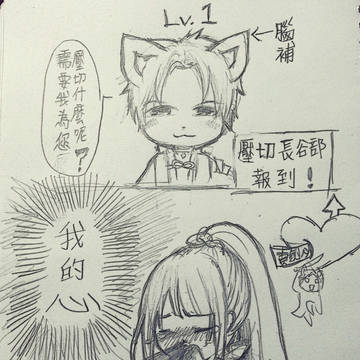 Lv.1
腦補
需要我為您
壓切什麼呢?
壓切長谷部
報到!
我的心